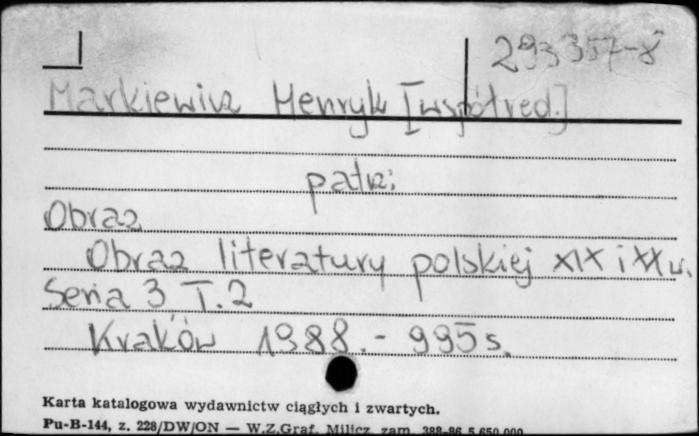 293357-8
Markiewicz Henryk [współred.]
patrz:
Obraz
Obraz literatury polskiej XIX i XX w.
Seria 3 T. 2
Kraków 1988.- 995 s.
Karta katalogowa wydawnictw ciągłych i zwartych.
Pu-B-144, z. 228/DW/ON — W.Z.Graf. Milicz zam. 388-86 5.650.000